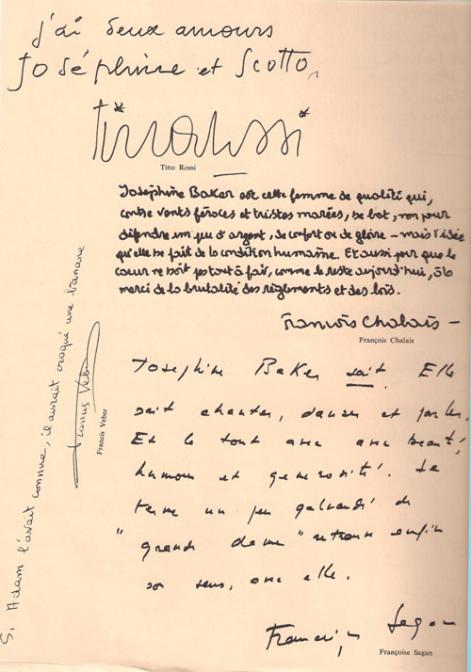 j'ai deux amours
Joséphine et Scotto,
Tino Rossi
Tino Rossi
Joséphine Baker est cette femme de qualité qui,
contre vents féroces et tristes marées, se bat, non pour
défendre un peu d'argent, de confort ou de gloire – mais l'idée
qu'elle se fait de la condition humaine. Et aussi pour que le
cœur ne soit pas tout à fait, comme le reste aujourd'hui, à la
merci de la brutalité des règlements et des lois.
François Chalais –
François Chalais
Joséphine Baker sait. Elle
sait chanter, danser et parler.
Et le tout avec beauté,
humour et générosité. Le
terme un peu galvaudé de
"grande dame" retrouve enfin
son sens, avec elle.
Françoise Sagan
Françoise Sagan
Si Adam l'avait connue, il aurait croqué une banane
Francis Veber
Francis Veber